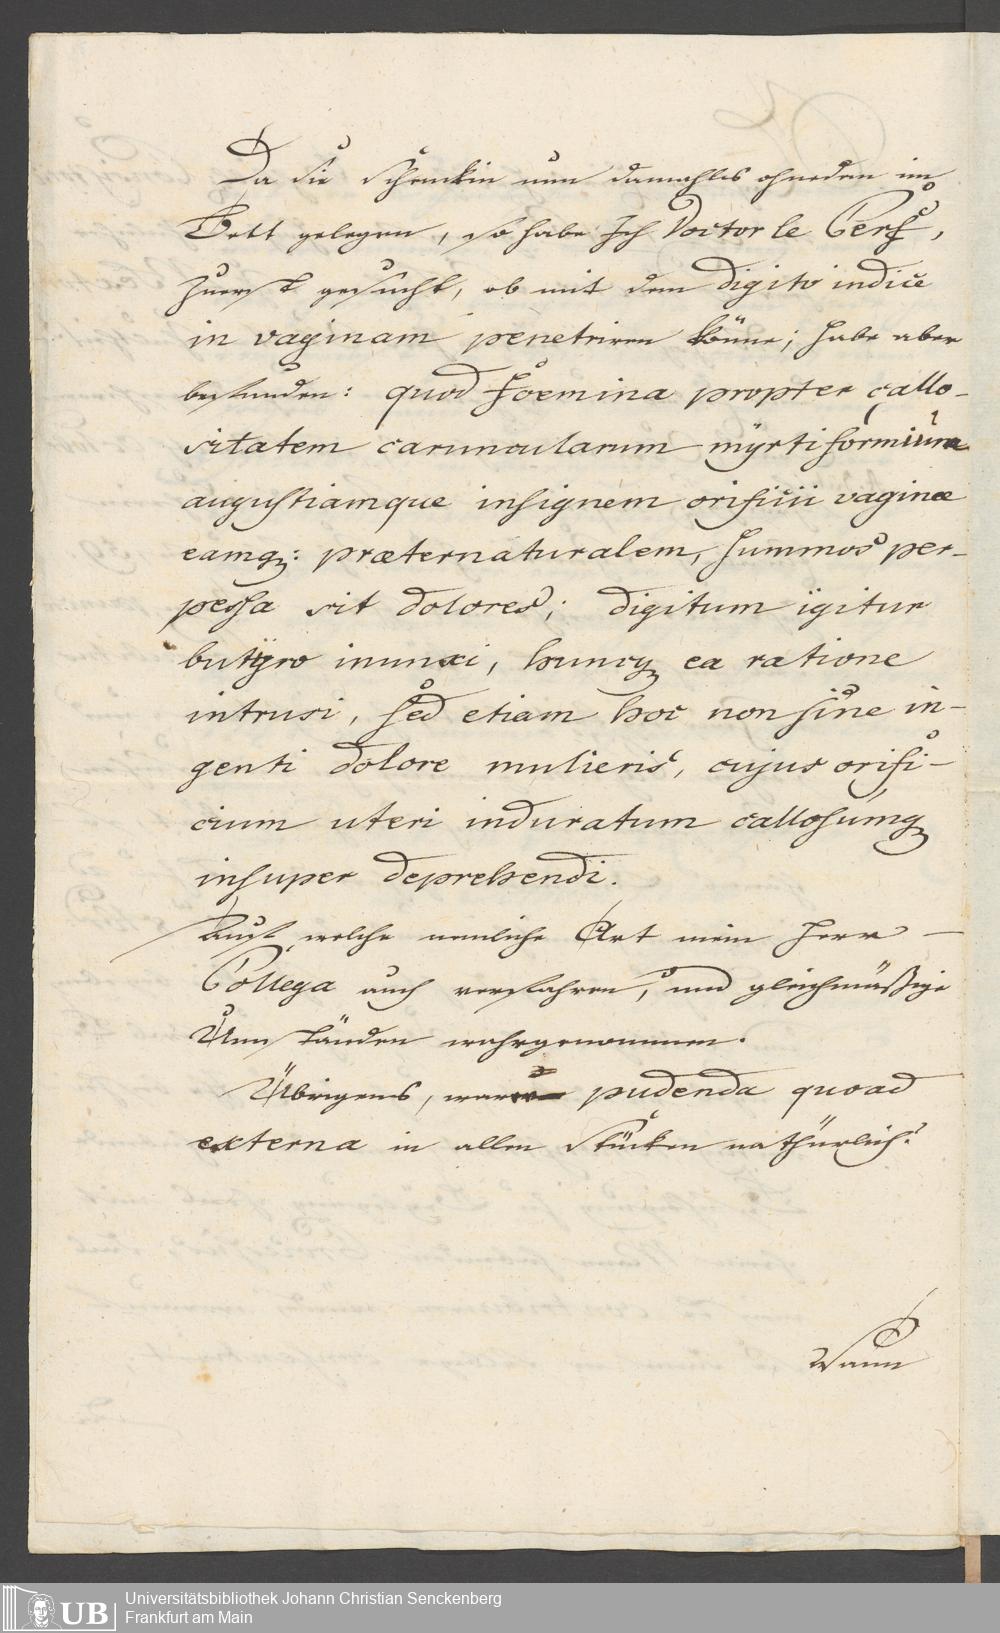 Da die Schenckin nun damahls ohnedem im
Bett gelegen, so habe Ich Doctor le Cerf,
zuerst gesucht, ob mit dem digito indice
in vaginam penetriren könne; habe aber
befunden: quod foemina propter callo-
sitatem caruncularum myrtiformium
angustiamque insignem orificii vaginæ
eamq: præternaturalem, summos per-
pessa sit dolores; digitum igitur
butyro inunxi, huncq ea ratione
intrusi, sed etiam hoc non sine in-
genti dolore mulieris, cujus orifi-
cium uteri induratum callosumq
insuper deprehendi.
Auf welche nemliche Art mein Herr
Collega auch verfahren, und gleichmäßige
Umständen wahrgenommen.
Übrigens, waren pudenda quoad
externa in allen Stücken nathürlich.
Wann
UB
Universitätsbibliothek Johann Christian Senckenberg
Frankfurt am Main